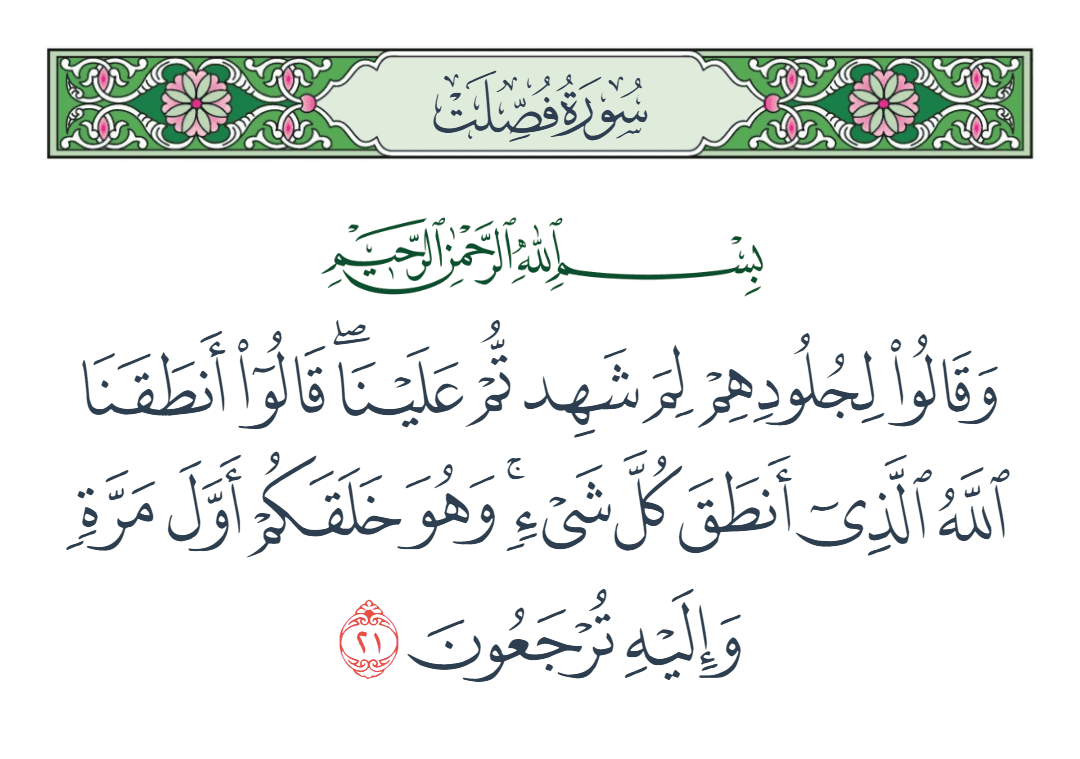 سُورَةُ فُصِّلَتْ
بِسْمِ ٱللَّهِ ٱلرَّحْمَٰنِ ٱلرَّحِيمِ
وَقَالُوا۟ لِجُلُودِهِمْ لِمَ شَهِد تُّمْ عَلَيْنَا ۖ قَالُوٓا۟ أَنطَقَنَا
ٱللَّهُ ٱلَّذِىٓ أَنطَقَ كُلَّ شَىْءٍ ۚ وَهُوَ خَلَقَكُمْ أَوَّلَ مَرَّةٍ
وَإِلَيْهِ تُرْجَعُونَ ٢١